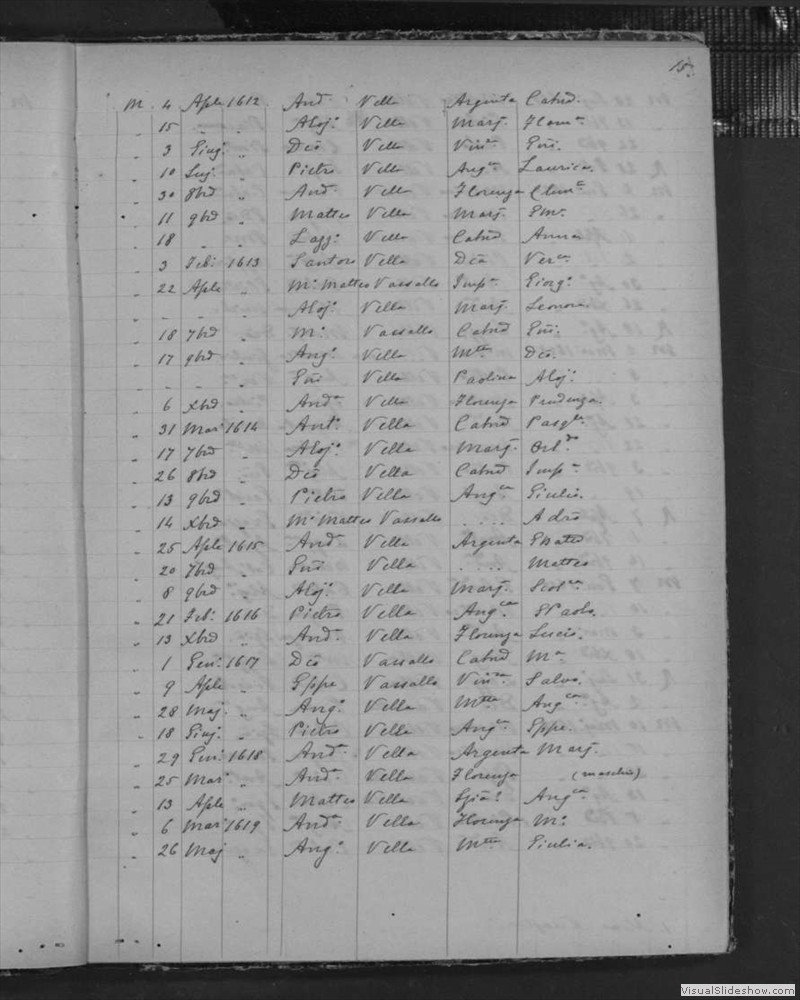 15.
M. 4 Aple 1612 Andª Vella Argenta Catnd.
„ 15 „ „ Alojº Vella Marjª
„ 3 Giugº „ Dcō Vella Vinª
„ 10 Lugº „ Pietro Vella Angca Laurica.
„ 30 8brd „ Andª Vella Florenza Clemª
„ 11 9brd „ Matteo Vella Marjª
„ 18 „ „ Lazzº Vella Catnd Anna
„ 3 Febº 1613 Santoro Vella Dcā Verca
„ 22 Aple „ Mº Matteo Vassallo Impª Giorgº
„ „ „ „ Alojº Vella Marjª Leonora
„ 18 7brd „ Mº Vassallo Catnd
„ 17 9brd „ Angº Vella Mtta Dcō.
„ „ „ Vella Paolina Alojº
„ 6 Xbrd „ Andª Vella Florenza Prudenza.
„ 31 Marº 1614 Antº Vella Catnd
„ 17 7brd „ Alojº Vella Marjª Orldo
„ 26 8brd „ Dcō Vella Catnd Impª
„ 13 9brd „ Pietro Vella Angca Giulio.
„ 14 Xbrd „ Mº Matteo Vassallo ....
„ 25 Aple 1615 Andª Vella Argenta
„ 20 7brd „ Vella .... Matteo
„ 8 9brd „ Alojº Vella Marjª
„ 21 Febº 1616 Pietro Vella Angca
„ 13 Xbrd „ Andª Vella Florenza Lucio.
„ 1 Genº 1617 Dcō Vassallo Catnd Mª
„ 9 Aple „ Gppe Vassallo Vinª Salvº
„ 28 Majº „ Angº Vella Mtta Angca
„ 18 Giugº „ Pietro Vella Angca Gppe.
„ 29 Genº 1618 Andª Vella Argenta Marjª
„ 25 Marº „ Andª Vella Florenza (maschio)
„ 13 Aple „ Matteo Vella Angca
„ 6 Marº 1619 Andª Vella Florenza Mº
„ 26 Maj „ Angº Vella Mtta Giulia.
VisualSlideshow.com